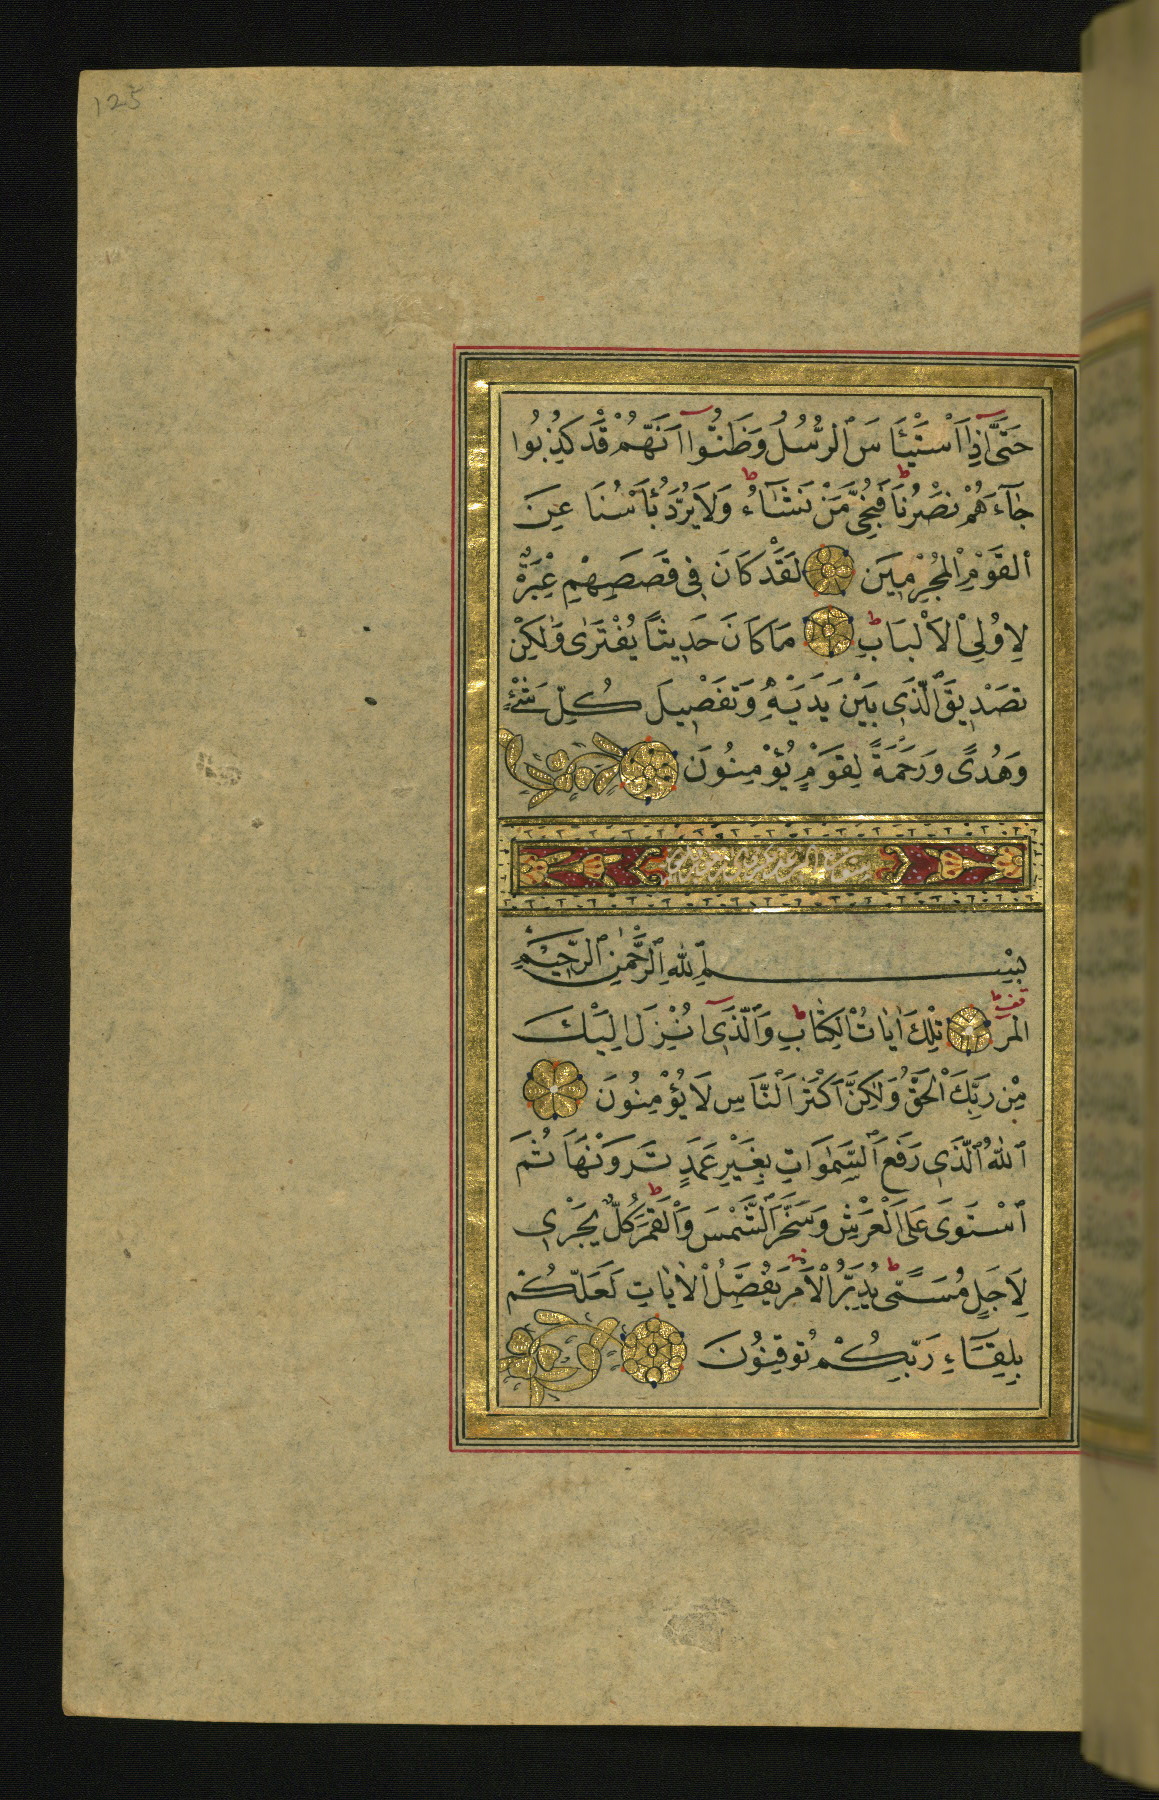 125
حَتَّىٓ اِذَا اسْتَيْـَٔسَ الرُّسُلُ وَظَنُّوٓا اَنَّهُمْ قَدْ كُذِبُوا
جَٓاءَهُمْ نَصْرُنَاۙ فَنُجِّىَ مَنْ نَشَٓاءُۜ وَلَا يُرَدُّ بَأْسُنَا عَنِ
الْقَوْمِ الْمُجْرِمِينَ لَقَدْ كَانَ فِى قَصَصِهِمْ عِبْرَةٌ
لِاُولِى الْاَلْبَابِ ط مَا كَانَ حَدِيثًا يُفْتَرٰى وَلٰكِنْ
تَصْدِيقَ الَّذِى بَيْنَ يَدَيْهِ وَتَفْصِيلَ كُلِّ شَىْءٍ
وَهُدًى وَرَحْمَةً لِقَوْمٍ يُؤْمِنُونَ
بِسْمِ اللّٰهِ الرَّحْمٰنِ الرَّحِيمِ
المر تِلْكَ اٰيَاتُ الْكِتَابِ ط وَالَّذِىٓ اُنْزِلَ اِلَيْكَ
مِنْ رَبِّكَ الْحَقُّ وَلٰكِنَّ اَكْثَرَ النَّاسِ لَا يُؤْمِنُونَ
اَللّٰهُ الَّذِى رَفَعَ السَّمٰوَاتِ بِغَيْرِ عَمَدٍ تَرَوْنَهَا ثُمَّ
اسْتَوٰى عَلَى الْعَرْشِ وَسَخَّرَ الشَّمْسَ وَالْقَمَرَ ط كُلٌّ يَجْرِى
لِاَجَلٍ مُسَمًّى ط يُدَبِّرُ الْاَمْرَ يُفَصِّلُ الْاٰيَاتِ لَعَلَّكُمْ
بِلِقَٓاءِ رَبِّكُمْ تُوقِنُونَ